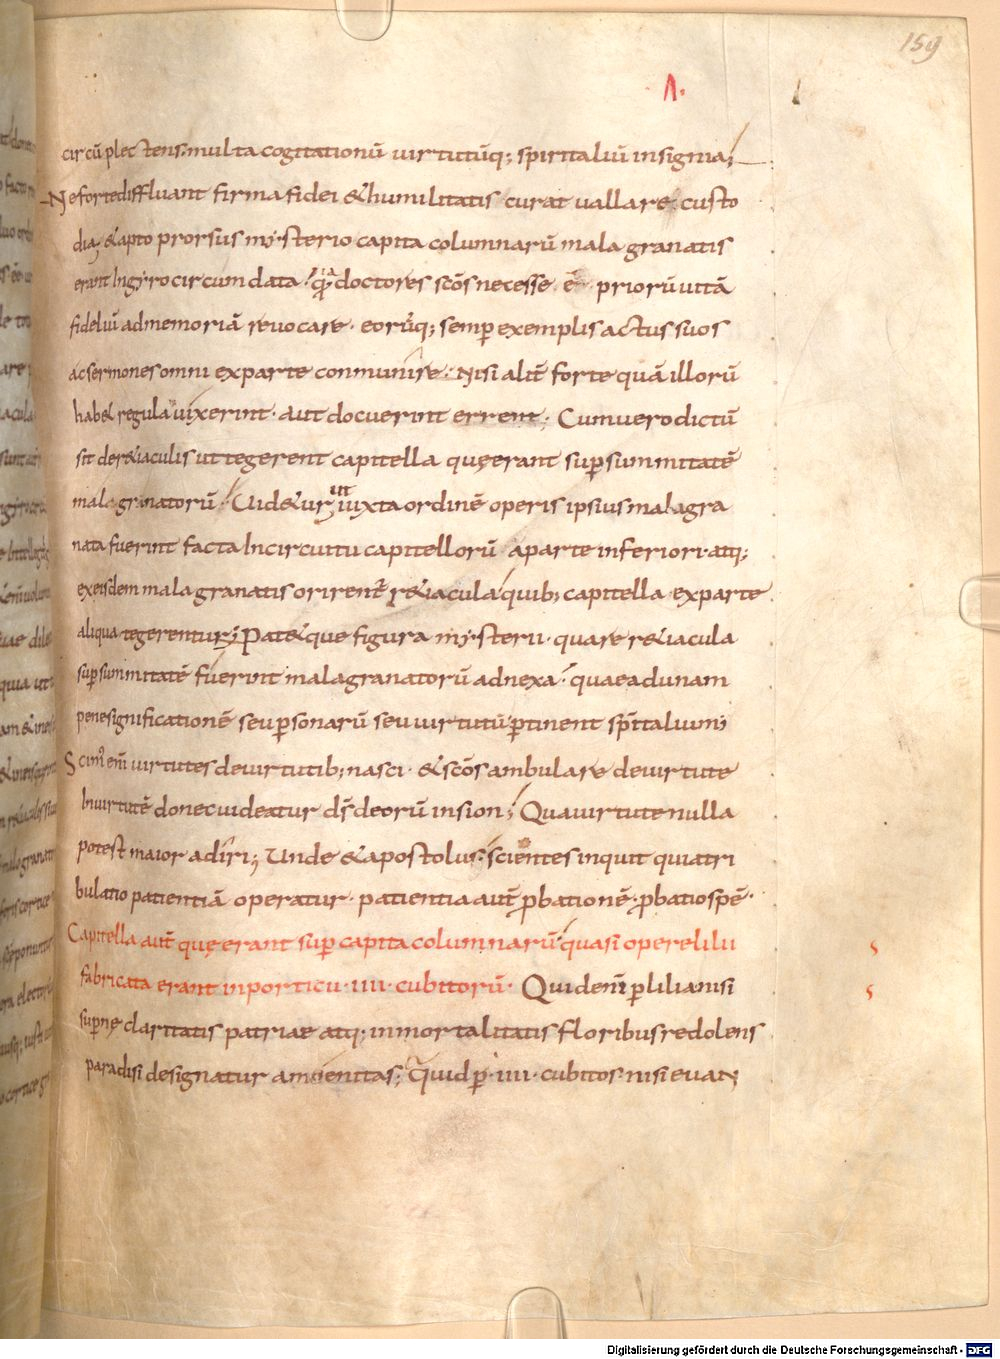 159
Λ.
circūplectens. multa cogitationū uirtutūq; spiritaliū insignia;
Ne forte diffluant firma fidei & humilitatis curat uallare custo
dia; & apto prorsus mysterio capita columnarū malagranatis
erant in gyro circumdata. doctores scōs necesse ē priorū uitā
fideliū ad memoriā reuocare. eorūq; semp exemplis actus suos
ac sermones omni ex parte conmunire. Nisi alit forte quā illorū
hab& regula uixerint. aut docuerint errent; Cum uero dictū
sit de r&iaculis ut tegerent capitella quę erant sup summitatē
malagranatorū. Uid&ur iuxta ordinē operis ipsius malagra
nata fuerint facta in circuitu capitellorū aparte inferiori atq;
ex eisdem malagranatis orirent r&iacula quib; capitella ex parte
aliqua tegerentur; Pat& que figura mysterii. quare r&iacula
sup summitatē fuerint malagranatorū adnexa. quae ad unam
pene significationē seu psonarū seu uirtutū ptinent spitalium;
Scim' eni uirtutes de uirtutib; nasci. & scōs ambulare de uirtute
in uirtutē donec uideatur ds deorū in sion; Qua uirtute nulla
potest maior adiri; Unde & apostolus. scientes inquit quia tri
bulatio patientiā operatur. patientia aut pbationē. pbatio spē.
Capitella aut quę erant sup capita columnarū quasi opere lilii
fabricata erant in porticu. IIII. cubitorū. Quid eni p lilia nisi
supnę claritatis patriae atq; inmortalitatis floribus redolens
paradisi designatur amoenitas; Quid p. IIII. cubitos nisi euan
Digitalisierung gefördert durch die Deutsche Forschungsgemeinschaft - DFG